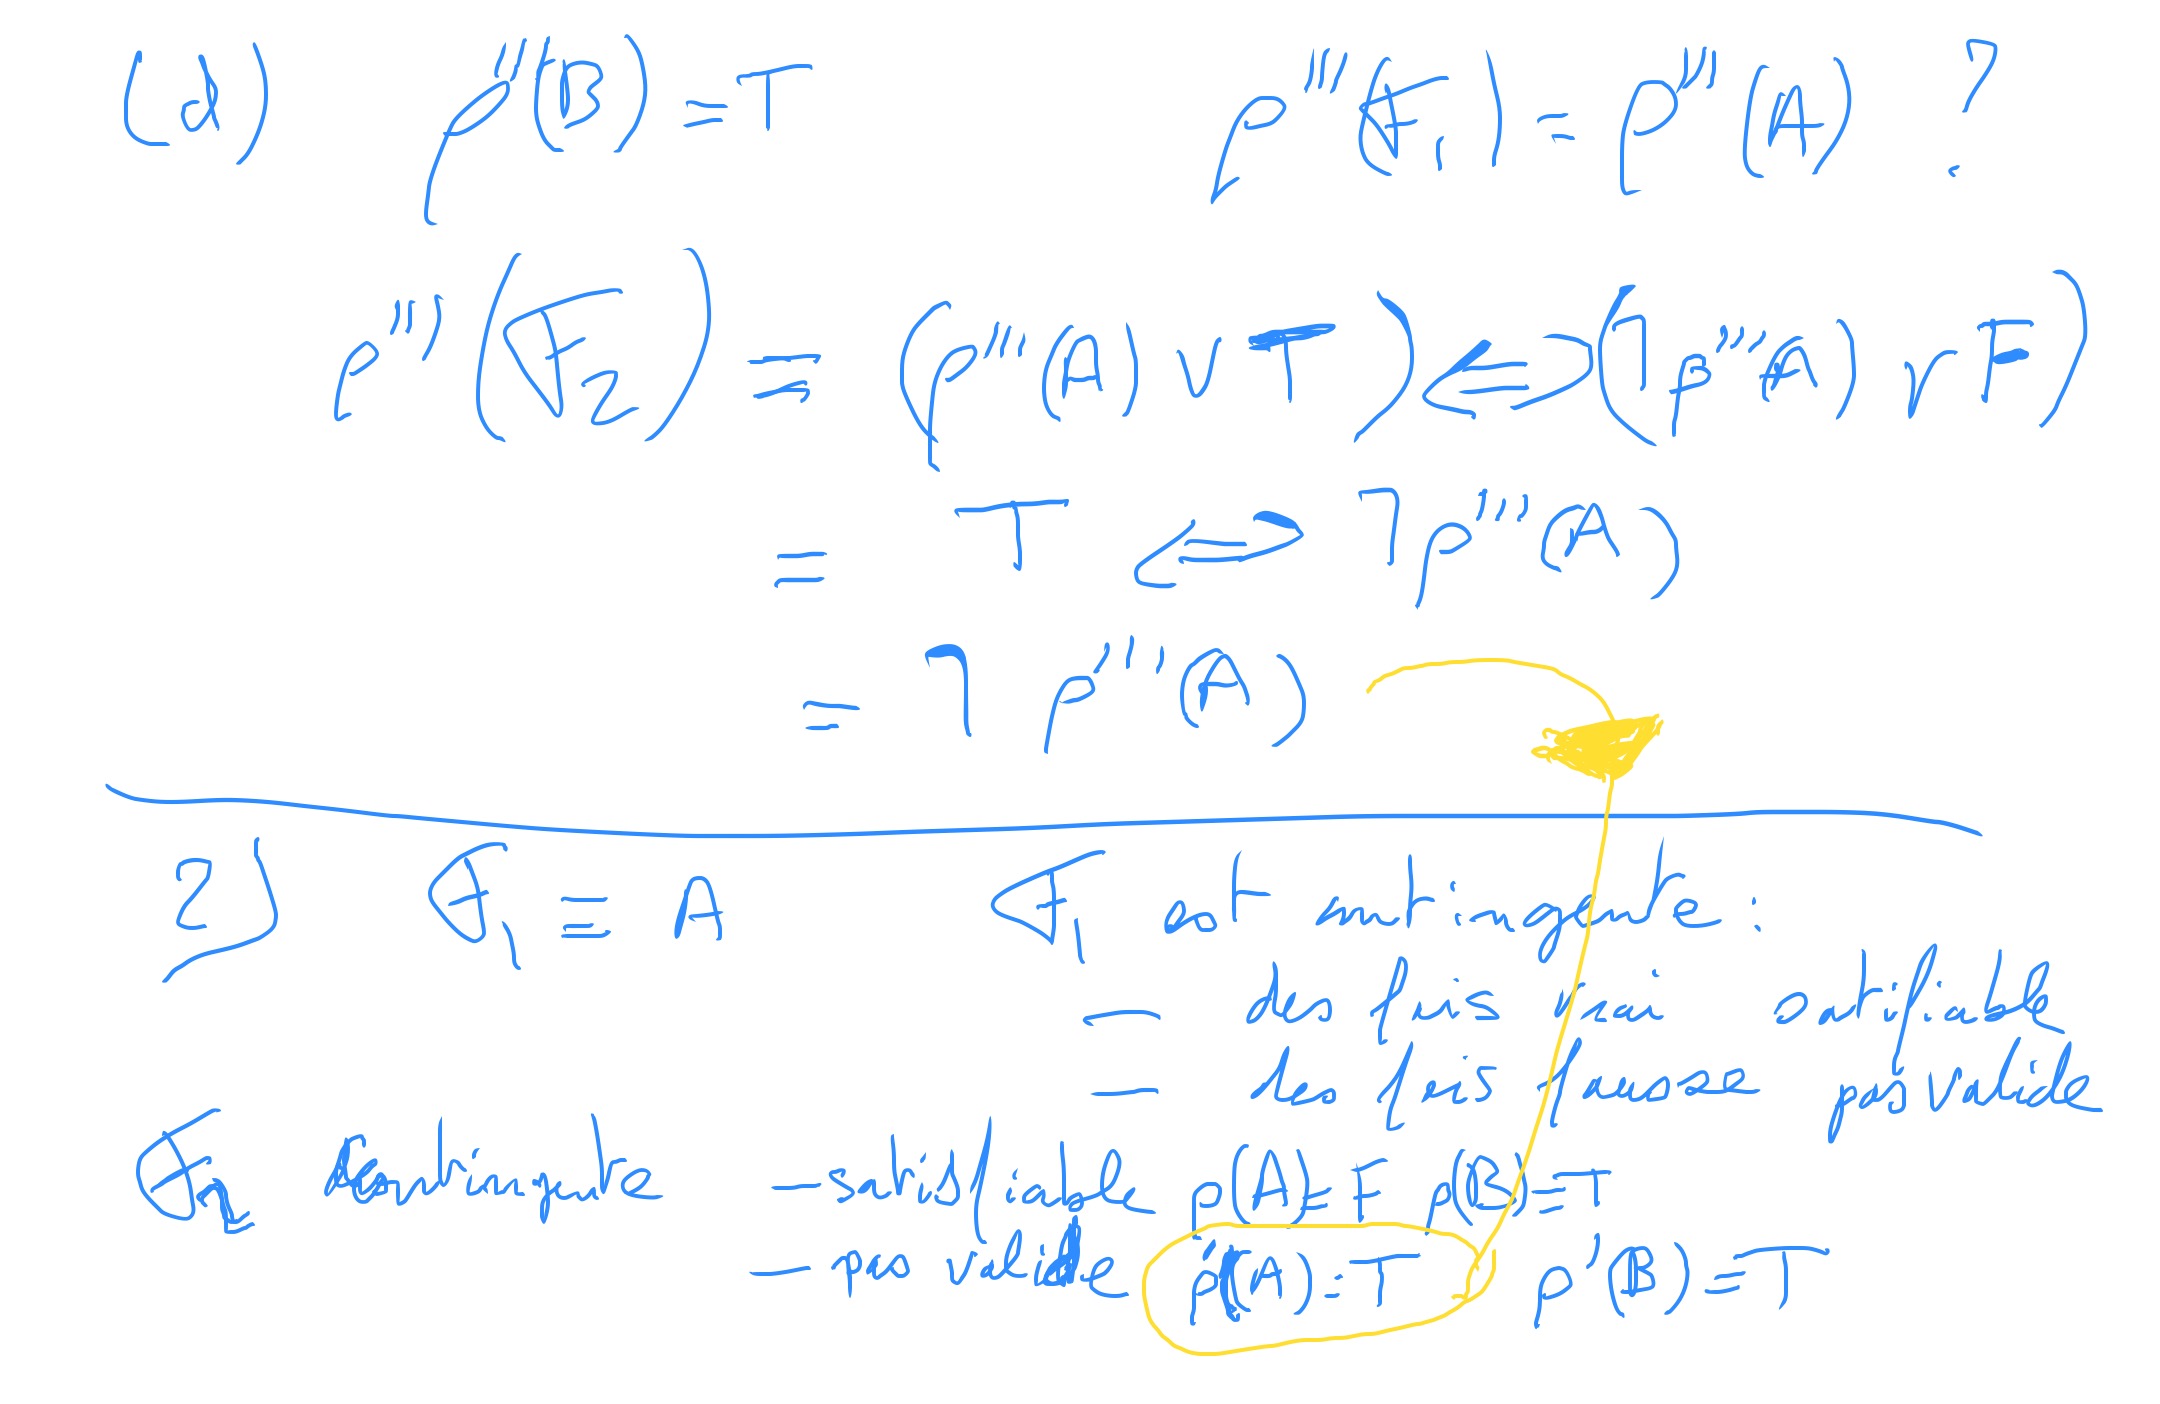 (d) ρ'''(B) = T ρ'''(F₁) = ρ'''(A) ?
ρ'''(F₂) = (ρ'''(A) ∨ T) ⇔ (¬ρ'''(A) ∨ F)
= T ⇔ ¬ρ'''(A)
= ¬ρ'''(A)
2) F₁ ≡ A F₁ est contingente :
— des fois vrai satisfiable
— des fois fausse pas valide
F₂ Contingente — satisfiable ρ(A)=F ρ(B)=T
— pas valide ρ'(A)=T ρ'(B)=T